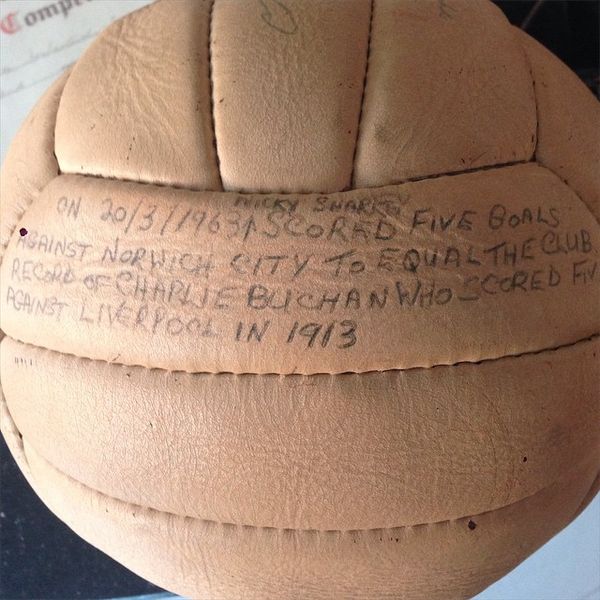 Compr
NICKY SHARKEY
ON 20/3/1963 ↑ SCORED FIVE GOALS
AGAINST NORWICH CITY TO EQUAL THE CLUB
RECORD OF CHARLIE BUCHAN WHO SCORED FIV
AGAINST LIVERPOOL IN 1913